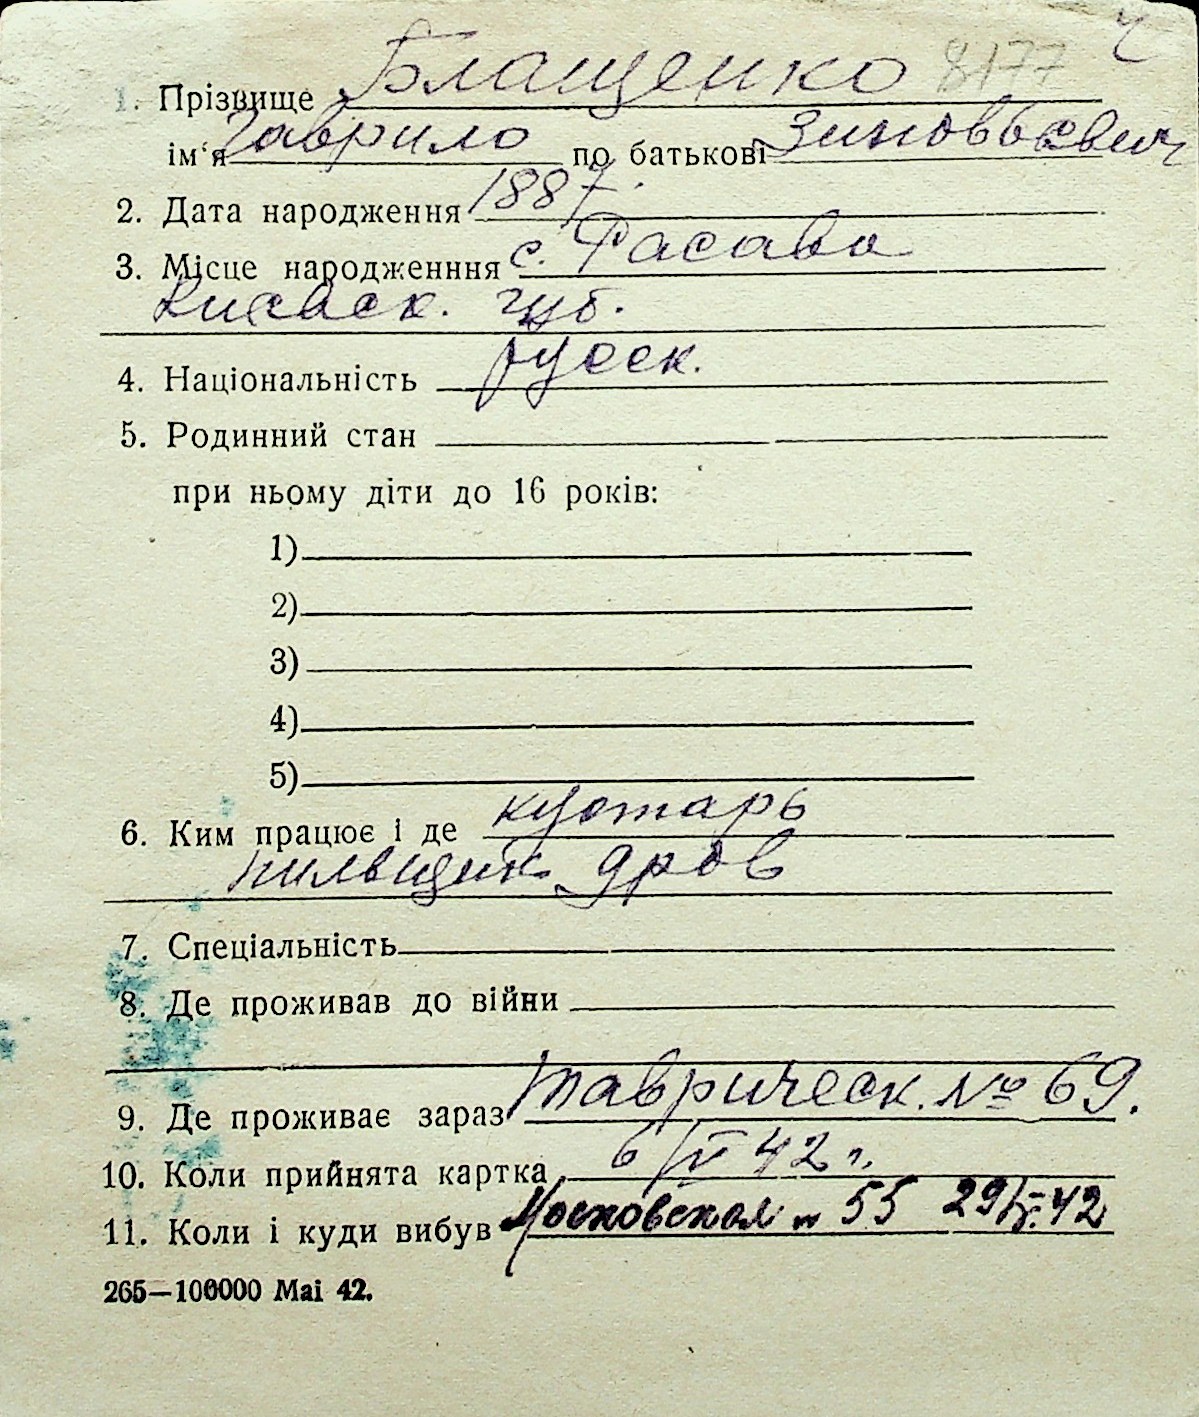 ч
1. Прізвище Блащенко 8177
ім'я Гаврило по батькові Зиновьевич
2. Дата народження 1887.
3. Місце народженння с. Расава
Киевск. губ.
4. Національність русск.
5. Родинний стан
при ньому діти до 16 років:
1)
2)
3)
4)
5)
6. Ким працює і де кустарь
пильщик дров
7. Спеціальність
8. Де проживав до війни
9. Де проживає зараз Таврическ. № 69.
10. Коли прийнята картка 6/VI 42 г.
11. Коли і куди вибув Московская 55 29/X 42
265—100000 Mai 42.